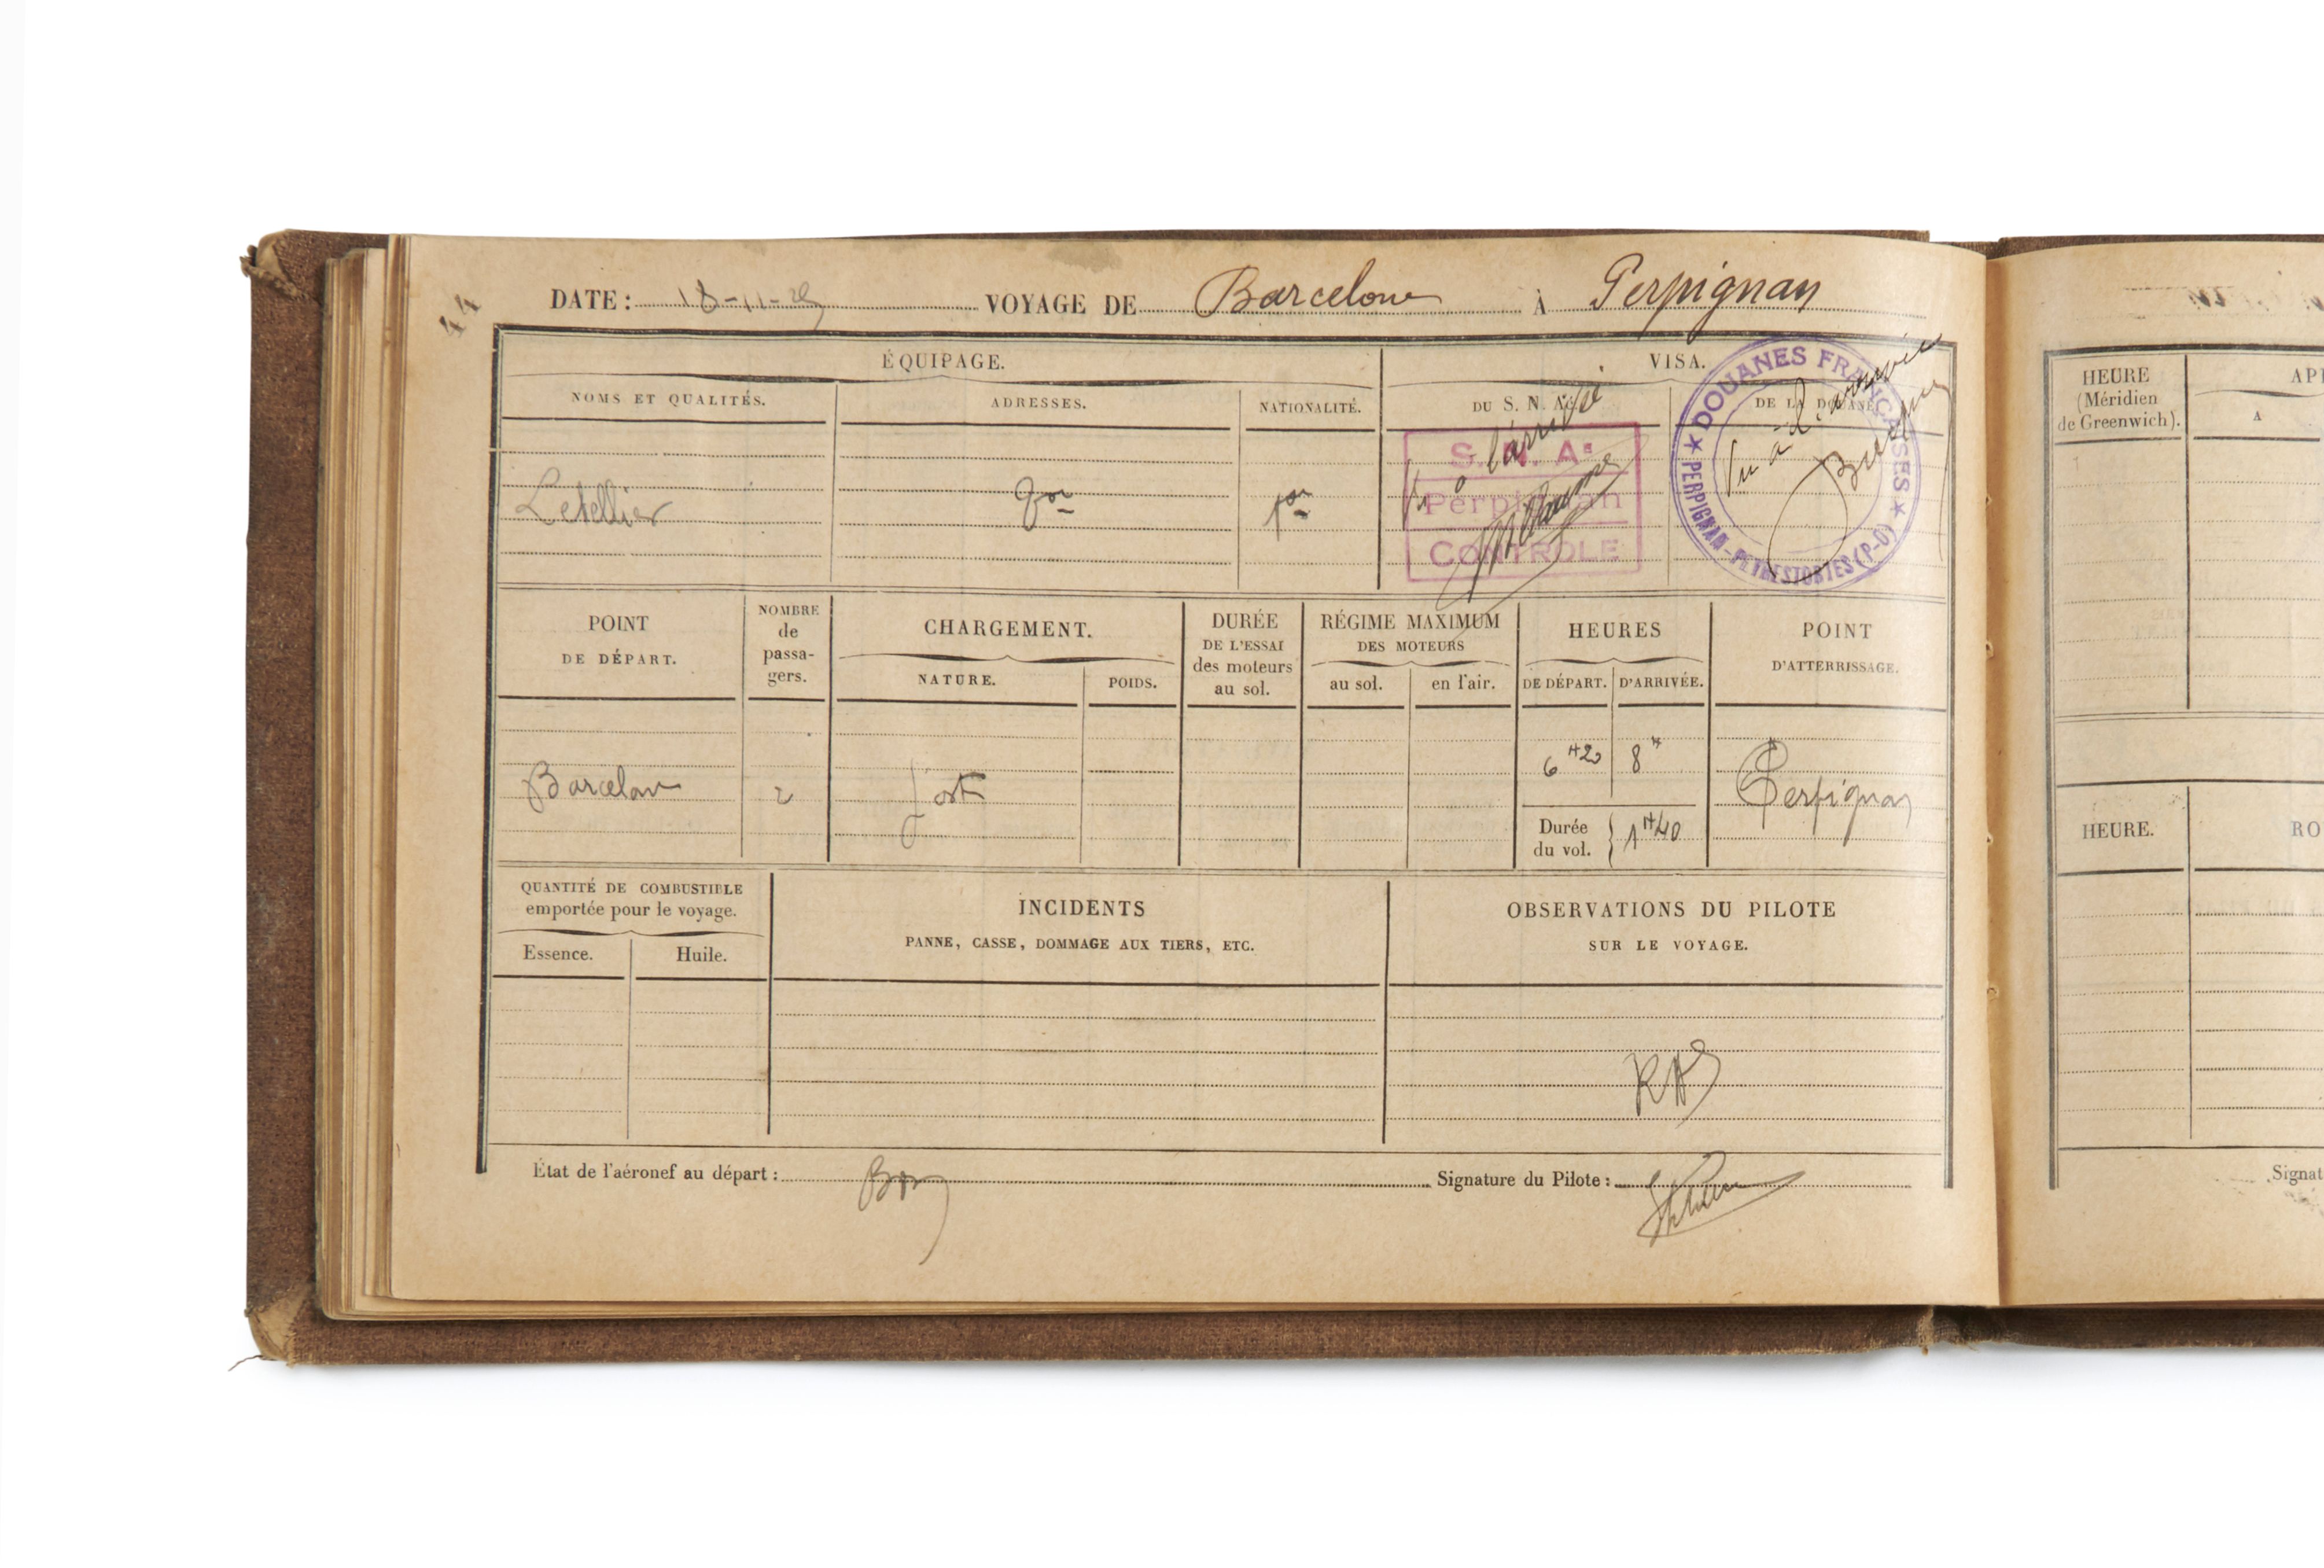 44
DATE : 18-11-25 VOYAGE DE Barcelone À Perpignan
ÉQUIPAGE. VISA.
NOMS ET QUALITÉS. ADRESSES. NATIONALITÉ. DU S. N. Aé. DE LA DOUANE.
Letellier
Vu à l'arrivée
S. N. Aé
Perpignan
CONTROLE
DOUANES FRANÇAISES
PERPIGNAN - PEYRESTORTES (P-O)
Vu à l'arrivée
POINT DE DÉPART. NOMBRE de passa- gers. CHARGEMENT. DURÉE DE L'ESSAI des moteurs au sol. RÉGIME MAXIMUM DES MOTEURS HEURES POINT D'ATTERRISSAGE.
NATURE. POIDS. au sol. en l'air. DE DÉPART. D'ARRIVÉE.
Barcelone 2 Post 6 H 20 8 H Perpignan
Durée du vol. 1 H 40
QUANTITÉ DE COMBUSTIBLE emportée pour le voyage. INCIDENTS OBSERVATIONS DU PILOTE
PANNE, CASSE, DOMMAGE AUX TIERS, ETC. SUR LE VOYAGE.
Essence. Huile.
RAS
État de l'aéronef au départ : Bon Signature du Pilote :
HEURE
(Méridien
de Greenwich).
A
HEURE. RO
Signat